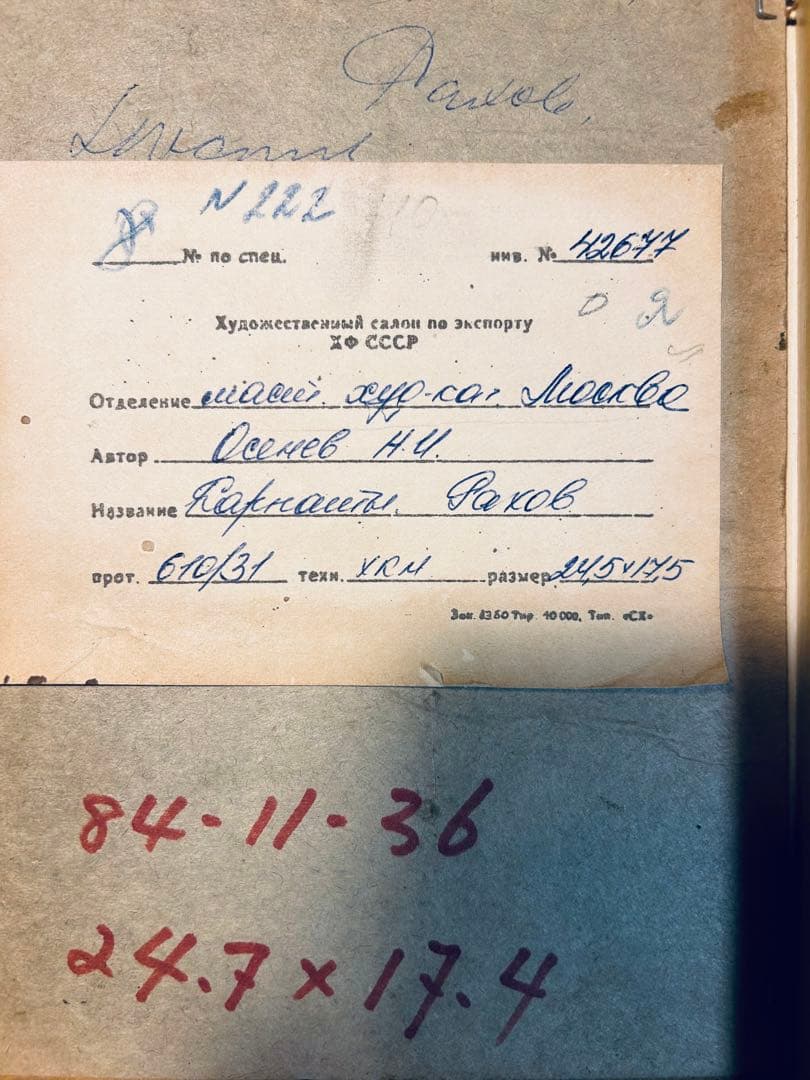 Рахов.
N 222
№ по спец.
инв. № 42677
Я
Художественный салон по экспорту
ХФ СССР
Отделение маст. худ-ка. Москва
Автор Осенев Н.И.
Название Карпаты. Рахов
прот. 610/31 техн. хкм размер 24,5х17,5
Зак. 8350 Тир. 10 000. Тип. «СХ»
84-11-36
24.7 x 17.4